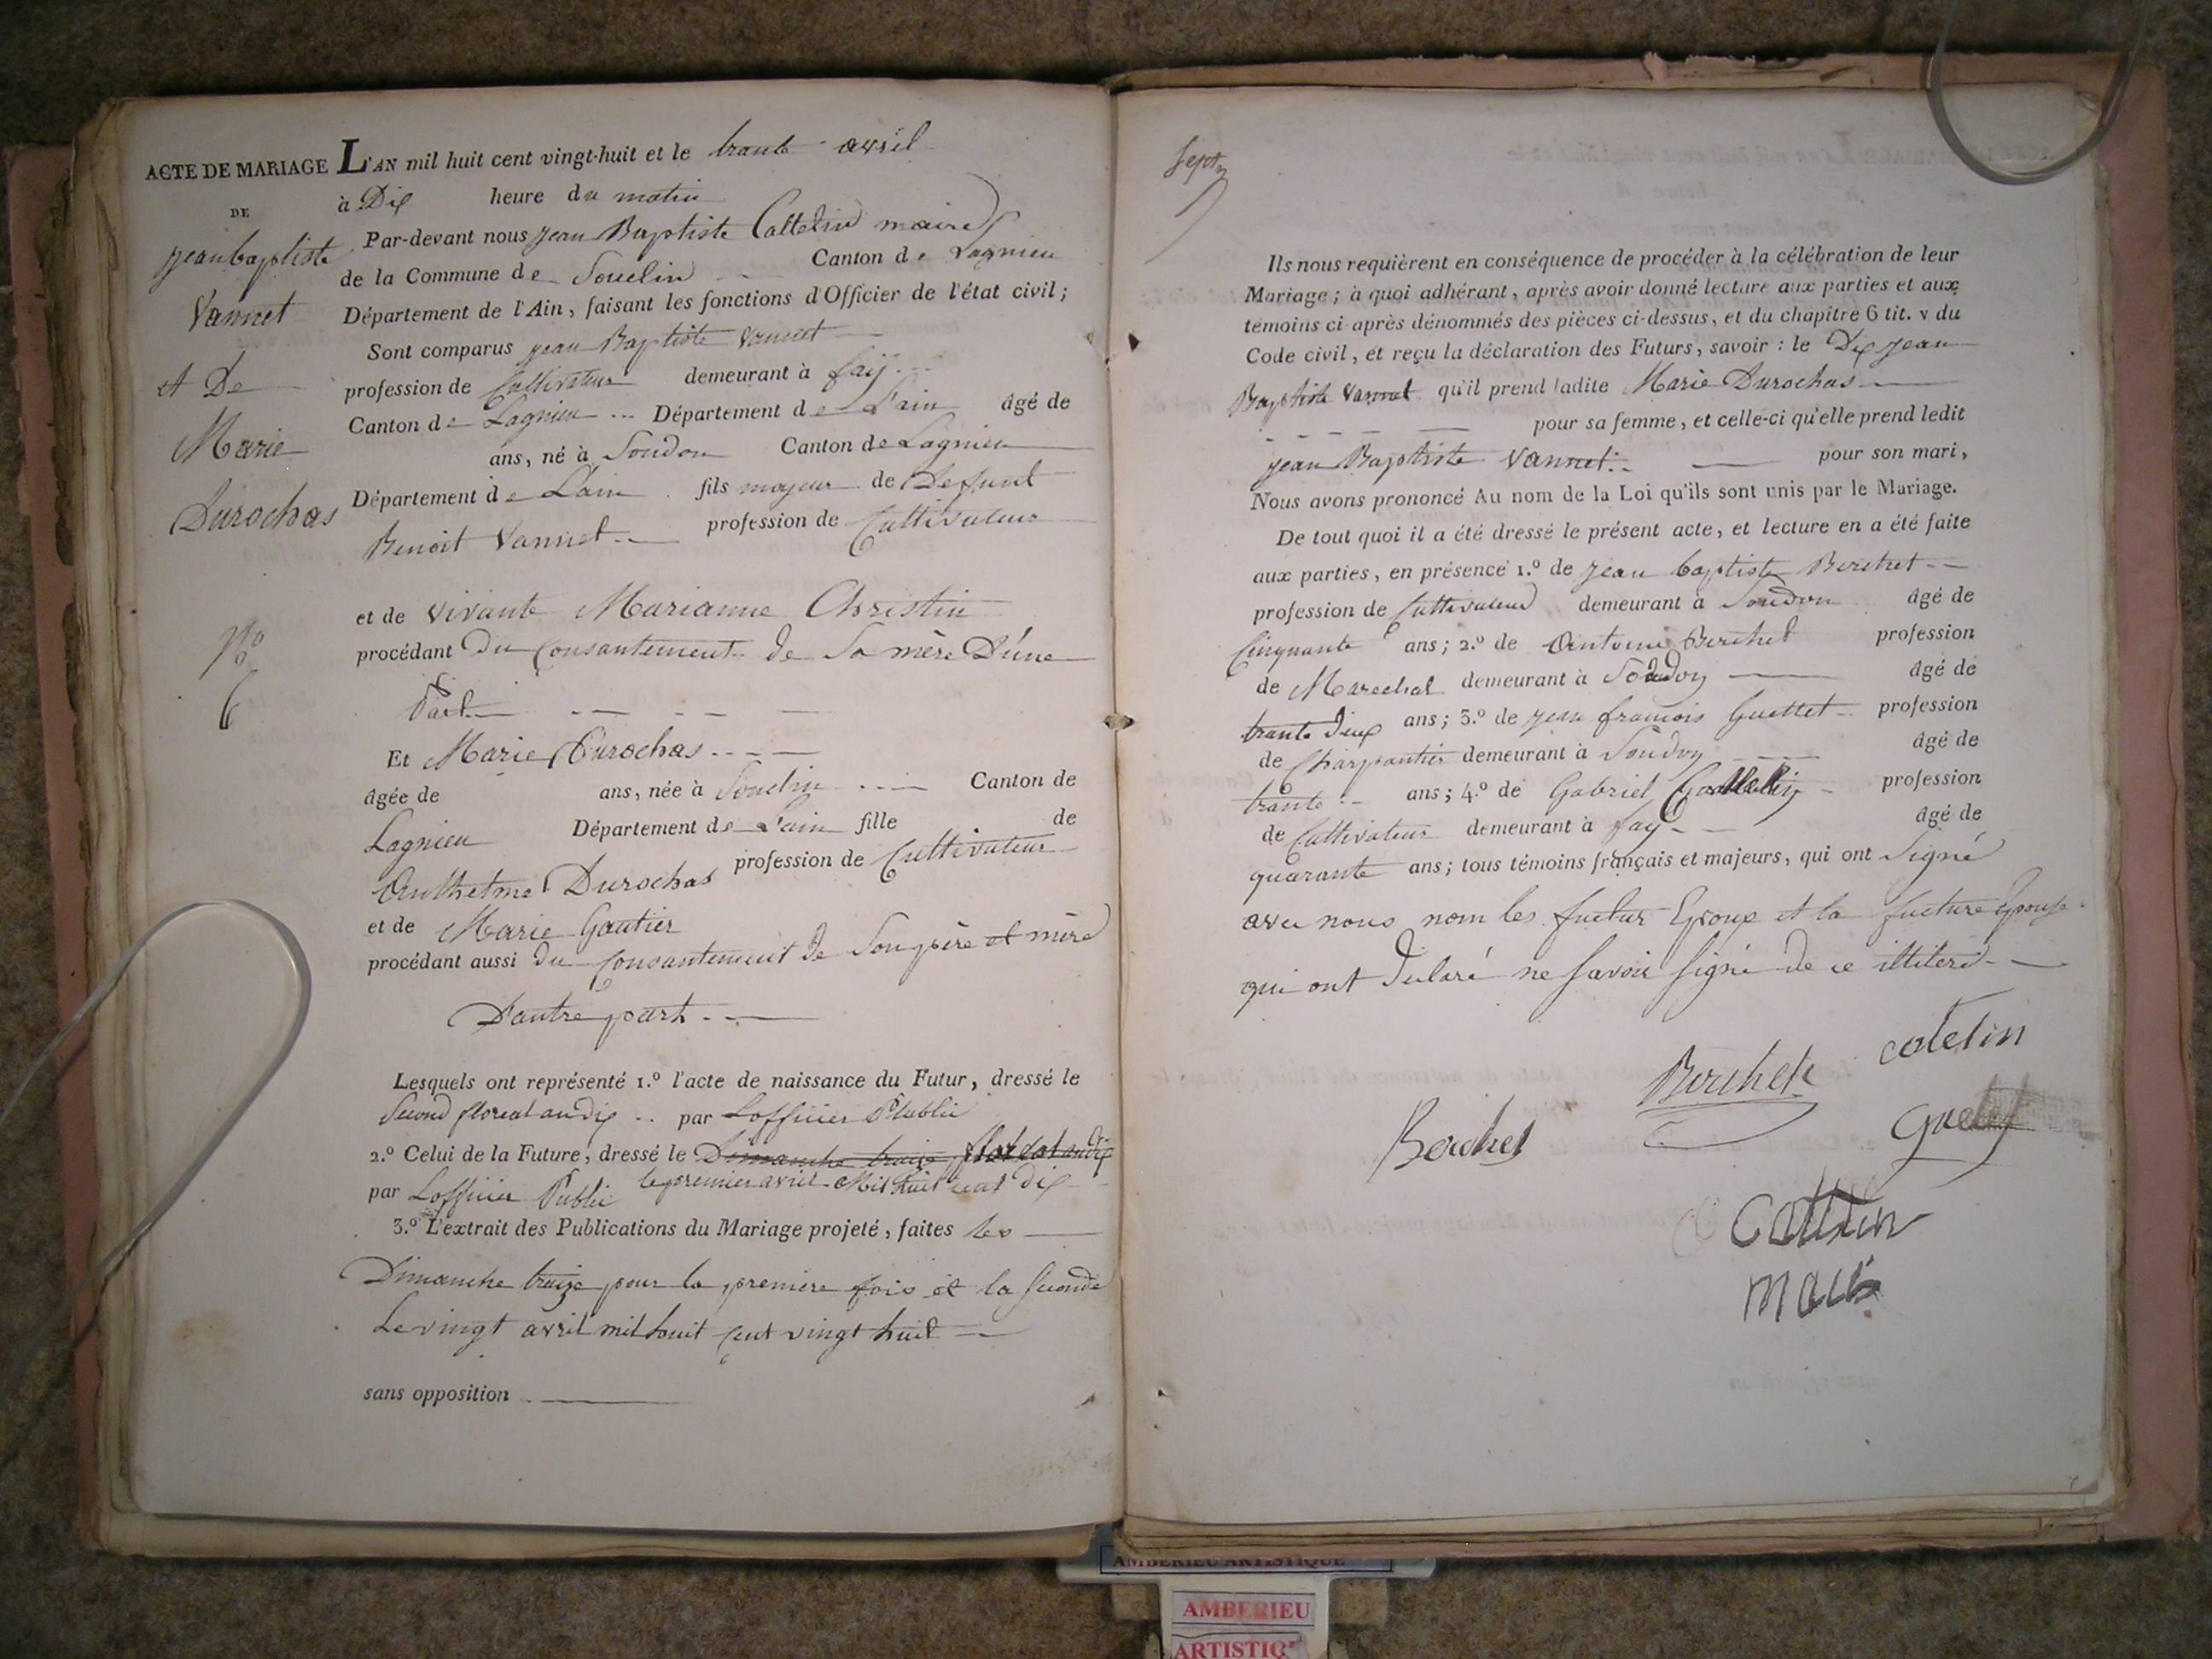 ACTE DE MARIAGE
DE
jean baptiste
Vannet
et De
Marie
Durochas
N.o
6
L'AN mil huit cent vingt-huit et le trante avril
à Dix heure du matin
Par-devant nous jean Baptiste Cattelin maire
de la Commune de Souclin Canton de Lagnieu
Département de l'Ain, faisant les fonctions d'Officier de l'état civil;
Sont comparus jean Baptiste Vannet
profession de Cultivateur demeurant à faÿ
Canton de Lagnieu Département de L'ain âgé de
ans, né à Soudon Canton de Lagnieu
Département de L'ain fils majeur de Defunt
Benoit Vannet profession de Cultivateur
et de vivante Marianne Christin
procédant du Consantement de Sa mère D'une
Part
Et Marie Durochas
âgée de ans, née à Souclin Canton de
Lagnieu Département de L'ain fille de
Anthelme Durochas profession de Cultivateur
et de Marie Gautier
procédant aussi du Consantement de Son père et mère
D'autre part
Lesquels ont représenté 1.º l'acte de naissance du Futur, dressé le
Second floreal an dix par Lofficier Public
2.º Celui de la Future, dressé le Dimanche traize floreal an dix
le premier avril Mil huit cent dix
par Lofficier Public
3.º L'extrait des Publications du Mariage projeté, faites les
Dimanche traize pour la premiere fois et la Seconde
Le vingt avril mil huit cent vingt huit
sans opposition
Sept
Ils nous requièrent en conséquence de procéder à la célébration de leur
Mariage; à quoi adhérant, après avoir donné lecture aux parties et aux
témoins ci-après dénommés des pièces ci-dessus, et du chapitre 6 tit. v du
Code civil, et reçu la déclaration des Futurs, savoir: le Dix jean
Baptiste Vannet qu'il prend ladite Marie Durochas
pour sa femme, et celle-ci qu'elle prend ledit
jean Baptiste Vannet pour son mari,
Nous avons prononcé Au nom de la Loi qu'ils sont unis par le Mariage.
De tout quoi il a été dressé le présent acte, et lecture en a été faite
aux parties, en présence 1.º de jean baptiste Berchet
profession de Cultivateur demeurant à Soudon âgé de
Cinquante ans; 2.º de Antoine Berchet profession
de Marechal demeurant à Soudon âgé de
trante Deux ans; 3.º de jean francois Guettet profession
de Charpantier demeurant à Soudon âgé de
trante ans; 4.º de Gabriel Cattelin profession
de Cultivateur demeurant à fay âgé de
quarante ans; tous témoins français et majeurs, qui ont Signé
avec nous nom les fuctur Epoux et la fucture Epouse
qui ont declaré ne Savoir Signé de ce illiteré
Berchet
catelin
Berchet
Guettet
Cattelin
maire
AMBERIEU ARTISTIQUE
AMBERIEU
ARTISTIQ